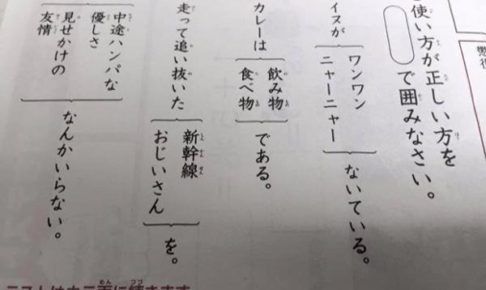 使い方が正しい方を
で囲みなさい。
イヌが
ワンワン
ニャーニャー
ないている。
カレーは
飲み物
食べ物
である。
走って追い抜いた
新幹線
おじいさん
を。
中途ハンパな
優しさ
見せかけの
友情
なんかいらない。